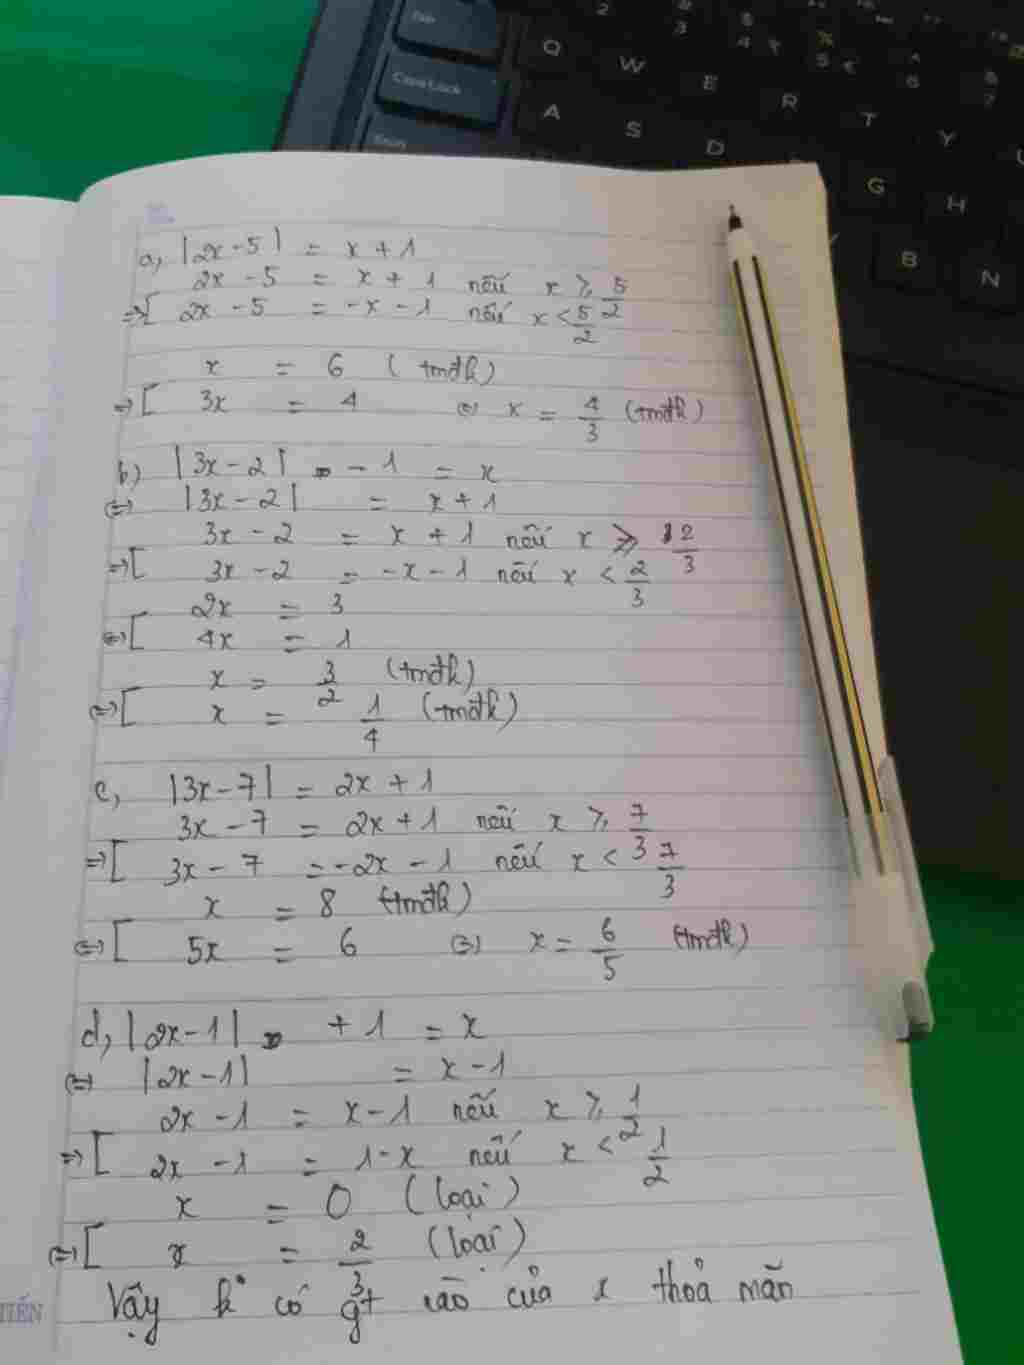 Tab
Caps Lock
Q W E R T Y
A S D G H
B N
a, |2x-5| = x + 1
2x - 5 = x + 1 nếu x ≥ 5/2
=> [ 2x - 5 = -x - 1 nếu x < 5/2
x = 6 (tmđk)
=> [ 3x = 4 <=> x = 4/3 (tmđk)
b) |3x-2| - 1 = x
<=> |3x-2| = x + 1
3x - 2 = x + 1 nếu x ≥ 2/3
=> [ 3x - 2 = -x - 1 nếu x < 2/3
2x = 3
<=> [ 4x = 1
x = 3/2 (tmđk)
<=> [ x = 1/4 (tmđk)
c, |3x-7| = 2x + 1
3x - 7 = 2x + 1 nếu x ≥ 7/3
=> [ 3x - 7 = -2x - 1 nếu x < 7/3
x = 8 (tmđk)
<=> [ 5x = 6 <=> x = 6/5 (tmđk)
d, |2x-1| + 1 = x
<=> |2x-1| = x - 1
2x - 1 = x - 1 nếu x ≥ 1/2
=> [ 2x - 1 = 1 - x nếu x < 1/2
x = 0 (loại)
<=> [ x = 2/3 (loại)
Vậy k° có gt nào của x thoả mãn
TIẾN